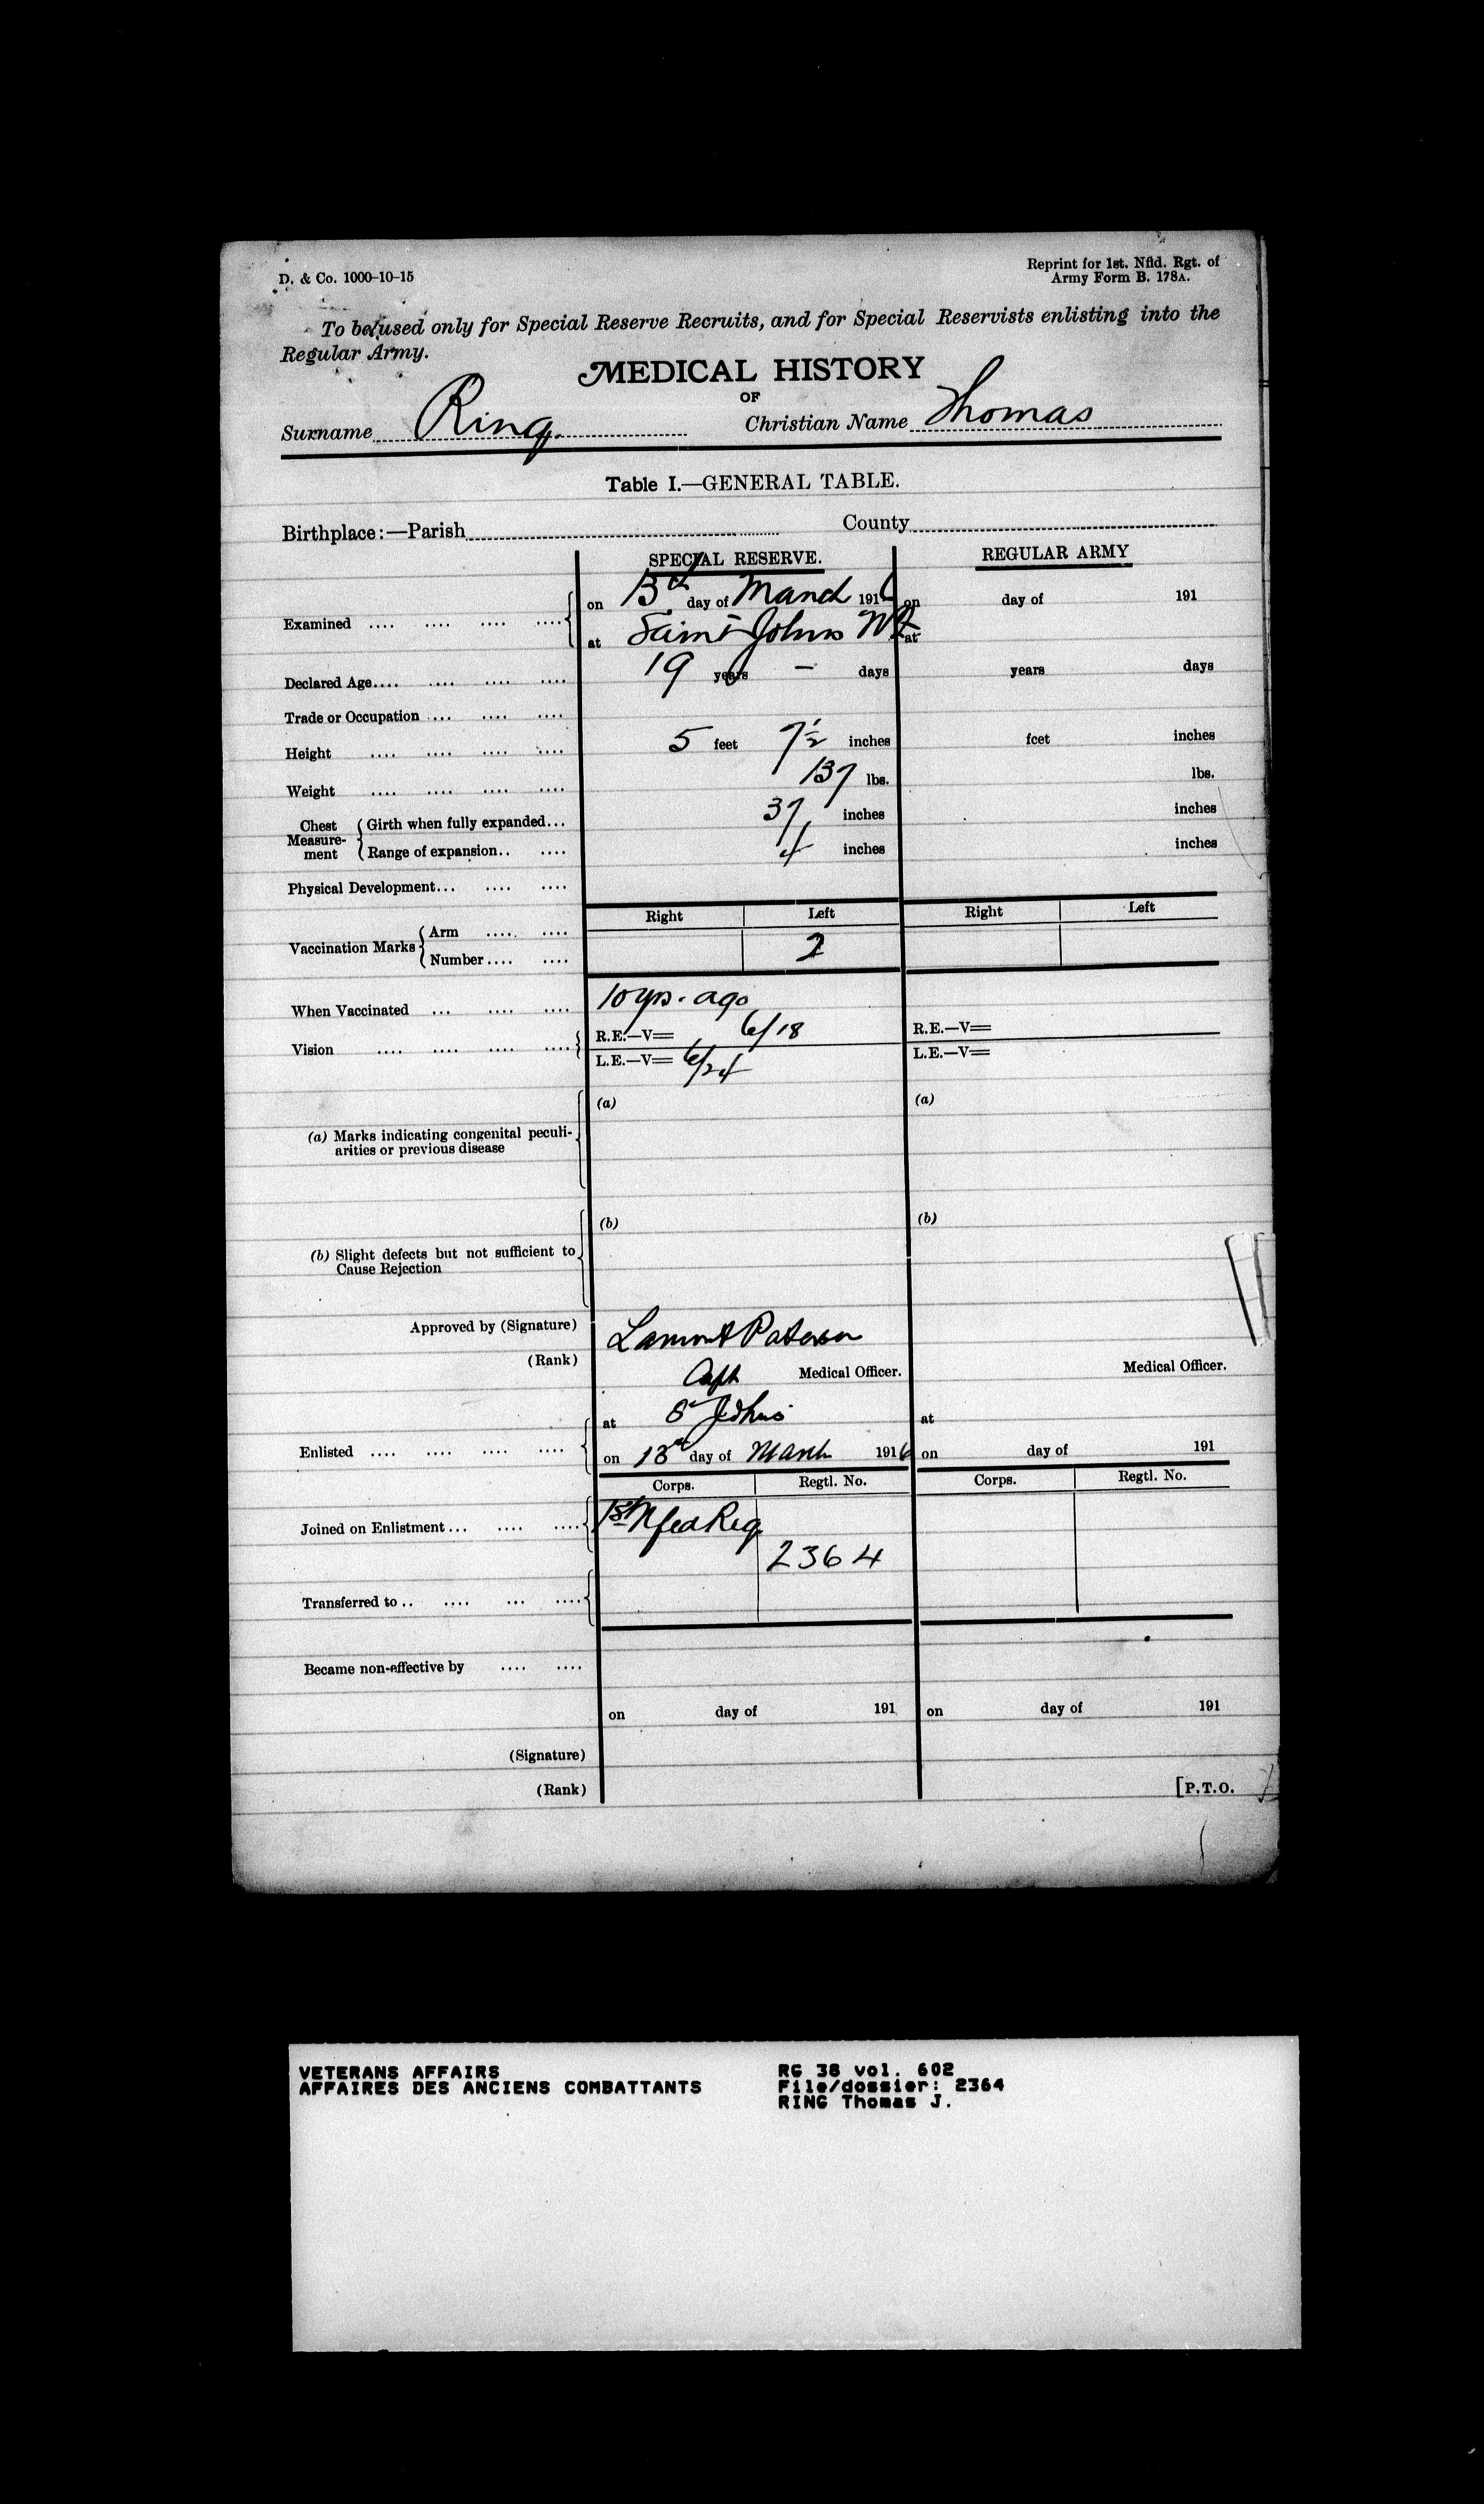 D. & Co. 1000-10-15
Reprint for 1st. Nfld. Rgt. of
Army Form B. 178A.
To be used only for Special Reserve Recruits, and for Special Reservists enlisting into the
Regular Army.
MEDICAL HISTORY
OF
Surname Ring. Christian Name Thomas
Table I.—GENERAL TABLE.
Birthplace:—Parish County
SPECIAL RESERVE. REGULAR ARMY
Examined .... .... .... .... on 13th day of March 1916 on day of 191
at Saint Johns Nfl at
Declared Age.... .... .... .... 19 years — days years days
Trade or Occupation .... .... ....
Height .... .... .... .... 5 feet 7½ inches feet inches
Weight .... .... .... .... 137 lbs. lbs.
Chest Measurement Girth when fully expanded... 37 inches inches
Range of expansion.. .... 4 inches inches
Physical Development... .... ....
Right Left Right Left
Vaccination Marks Arm .... ....
Number .... .... 2
When Vaccinated ... .... .... 10 yrs. ago
Vision .... .... .... .... R.E.—V= 6/18 R.E.—V=
L.E.—V= 6/24 L.E.—V=
(a) (a)
(a) Marks indicating congenital peculi-
arities or previous disease
(b) (b)
(b) Slight defects but not sufficient to
Cause Rejection
Approved by (Signature) Lamont Paterson
(Rank) Capt Medical Officer. Medical Officer.
at St Johns at
Enlisted .... .... .... .... on 13th day of March 1916 on day of 191
Corps. Regtl. No. Corps. Regtl. No.
Joined on Enlistment... .... .... 1st Nfld Reg
2364
Transferred to .. .... ... ....
Became non-effective by .... ....
on day of 191 on day of 191
(Signature)
(Rank)
[P.T.O.
VETERANS AFFAIRS
AFFAIRES DES ANCIENS COMBATTANTS
RG 38 vol. 602
File/dossier: 2364
RING Thomas J.